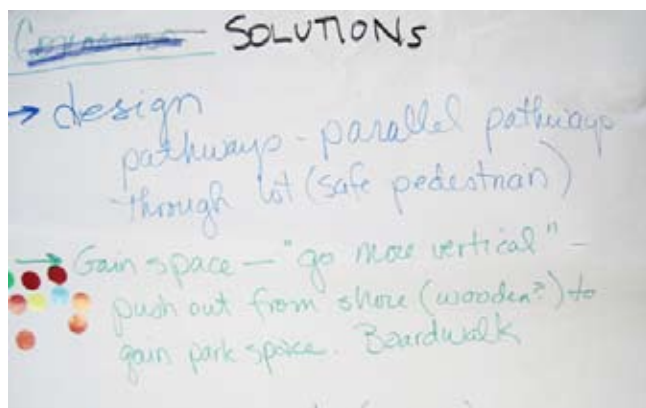 SOLUTIONS
→ design
pathways - parallel pathways
through lot (safe pedestrian)
→ Gain space — "go more vertical" –
push out from shore (wooden?) to
gain park space. Boardwalk